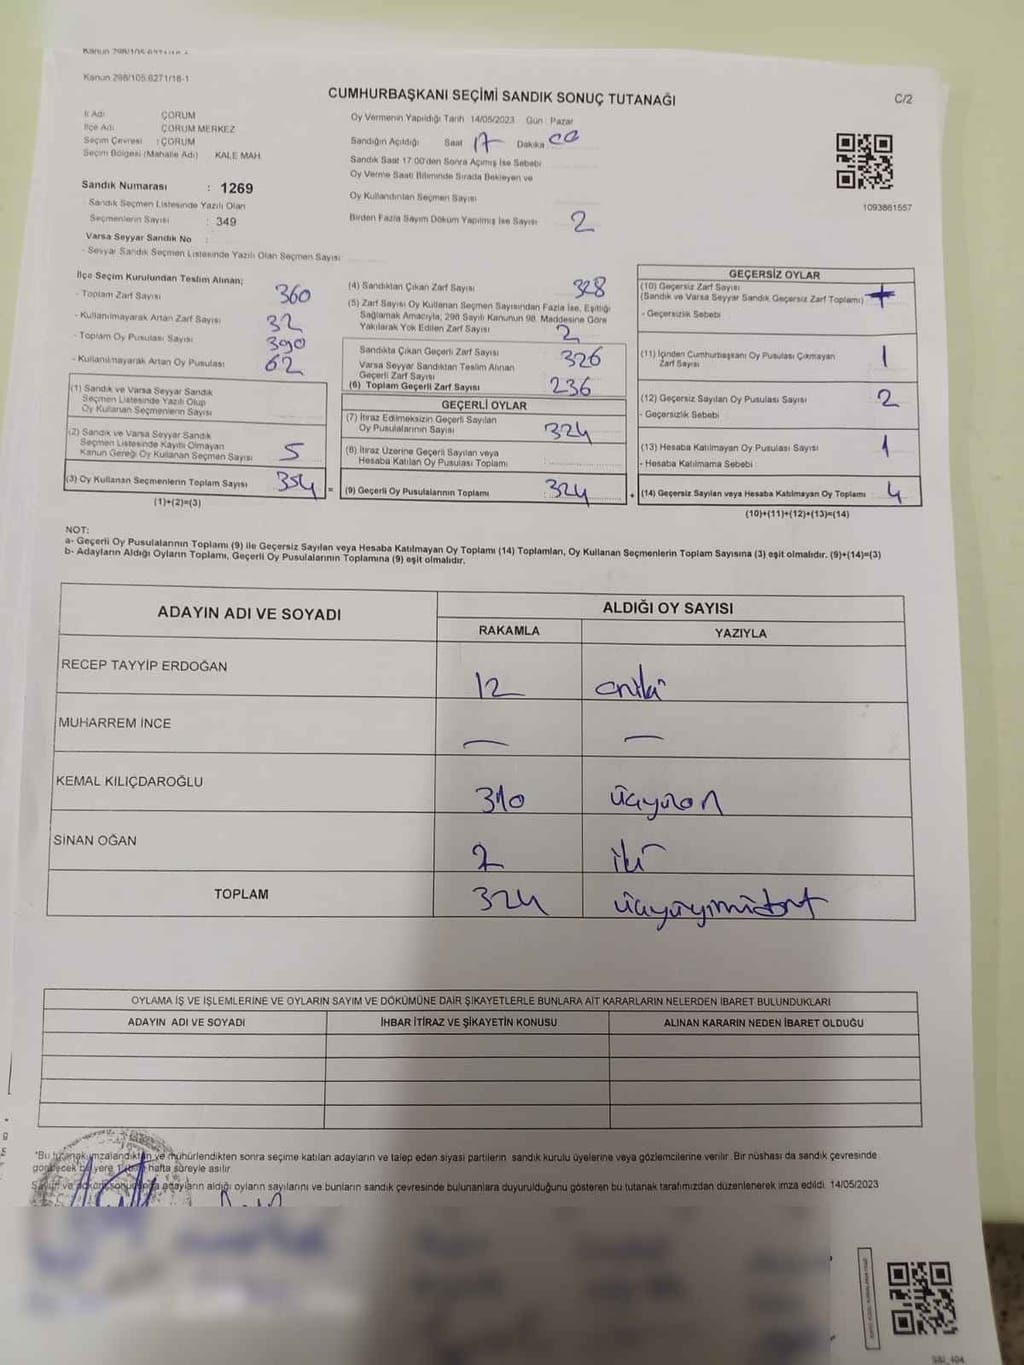 Kanun 298/105.6271/18-1
CUMHURBAŞKANI SEÇİMİ SANDIK SONUÇ TUTANAĞI
C/2
İl Adı : ÇORUM
İlçe Adı : ÇORUM MERKEZ
Seçim Çevresi : ÇORUM
Seçim Bölgesi (Mahalle Adı) KALE MAH.
Sandık Numarası : 1269
Sandık Seçmen Listesinde Yazılı Olan
Seçmenlerin Sayısı : 349
Varsa Seyyar Sandık No
- Seyyar Sandık Seçmen Listesinde Yazılı Olan Seçmen Sayısı
Oy Vermenin Yapıldığı Tarih 14/05/2023 Gün : Pazar
Sandığın Açıldığı Saat 17 Dakika 00
Sandık Saat 17:00'den Sonra Açılmış İse Sebebi
Oy Verme Saati Bitiminde Sırada Bekleyen ve
Oy Kullandırılan Seçmen Sayısı
Birden Fazla Sayım Döküm Yapılmış İse Sayısı 2
1093861557
İlçe Seçim Kurulundan Teslim Alınan;
- Toplam Zarf Sayısı 360
- Kullanılmayarak Artan Zarf Sayısı 32
- Toplam Oy Pusulası Sayısı 390
- Kullanılmayarak Artan Oy Pusulası 62
(1) Sandık ve Varsa Seyyar Sandık
Seçmen Listesinde Yazılı Olup
Oy Kullanan Seçmenlerin Sayısı
(2) Sandık ve Varsa Seyyar Sandık
Seçmen Listesinde Kayıtlı Olmayan
Kanun Gereği Oy Kullanan Seçmen Sayısı 5
(3) Oy Kullanan Seçmenlerin Toplam Sayısı 354
(1)+(2)=(3)
(4) Sandıktan Çıkan Zarf Sayısı 328
(5) Zarf Sayısı Oy Kullanan Seçmen Sayısından Fazla İse, Eşitliği
Sağlamak Amacıyla, 298 Sayılı Kanunun 98. Maddesine Göre
Yakılarak Yok Edilen Zarf Sayısı 2
Sandıkta Çıkan Geçerli Zarf Sayısı 326
Varsa Seyyar Sandıktan Teslim Alınan
Geçerli Zarf Sayısı
(6) Toplam Geçerli Zarf Sayısı 236
GEÇERLİ OYLAR
(7) İtiraz Edilmeksizin Geçerli Sayılan
Oy Pusulalarının Sayısı 324
(8) İtiraz Üzerine Geçerli Sayılan veya
Hesaba Katılan Oy Pusulası Toplamı
= (9) Geçerli Oy Pusulalarının Toplamı 324
GEÇERSİZ OYLAR
(10) Geçersiz Zarf Sayısı
(Sandık ve Varsa Seyyar Sandık Geçersiz Zarf Toplamı)
- Geçersizlik Sebebi
(11) İçinden Cumhurbaşkanı Oy Pusulası Çıkmayan
Zarf Sayısı 1
(12) Geçersiz Sayılan Oy Pusulası Sayısı 2
- Geçersizlik Sebebi
(13) Hesaba Katılmayan Oy Pusulası Sayısı 1
- Hesaba Katılmama Sebebi
+ (14) Geçersiz Sayılan veya Hesaba Katılmayan Oy Toplamı 4
(10)+(11)+(12)+(13)=(14)
NOT:
a- Geçerli Oy Pusulalarının Toplamı (9) ile Geçersiz Sayılan veya Hesaba Katılmayan Oy Toplamı (14) Toplamları, Oy Kullanan Seçmenlerin Toplam Sayısına (3) eşit olmalıdır. (9)+(14)=(3)
b- Adayların Aldığı Oyların Toplamı, Geçerli Oy Pusulalarının Toplamına (9) eşit olmalıdır.
ADAYIN ADI VE SOYADI ALDIĞI OY SAYISI
RAKAMLA YAZIYLA
RECEP TAYYİP ERDOĞAN 12 oniki
MUHARREM İNCE — —
KEMAL KILIÇDAROĞLU 310 üçyüzon
SİNAN OĞAN 2 iki
TOPLAM 324 üçyüzyirmidört
OYLAMA İŞ VE İŞLEMLERİNE VE OYLARIN SAYIM VE DÖKÜMÜNE DAİR ŞİKAYETLERLE BUNLARA AİT KARARLARIN NELERDEN İBARET BULUNDUKLARI
ADAYIN ADI VE SOYADI İHBAR İTİRAZ VE ŞİKAYETİN KONUSU ALINAN KARARIN NEDEN İBARET OLDUĞU
*Bu tutanak imzalandıktan ve mühürlendikten sonra seçime katılan adayların ve talep eden siyasi partilerin sandık kurulu üyelerine veya gözlemcilerine verilir. Bir nüshası da sandık çevresinde
hafta süreyle asılır.
adayların aldığı oyların sayılarını ve bunların sandık çevresinde bulunanlara duyurulduğunu gösteren bu tutanak tarafımızdan düzenlenerek imza edildi. 14/05/2023